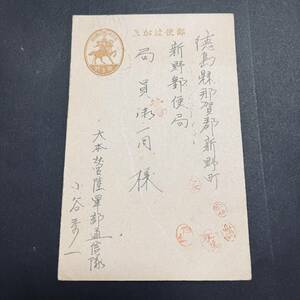 郵便はがき
德島縣那賀郡新野町
新野郵便局
局員御一同 様
大本營陸軍部通信隊
小谷